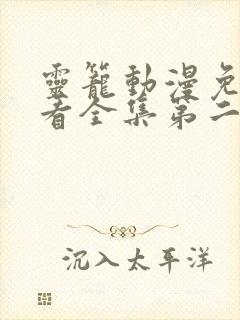 靈籠動漫免
看全集第二
沉入太平洋